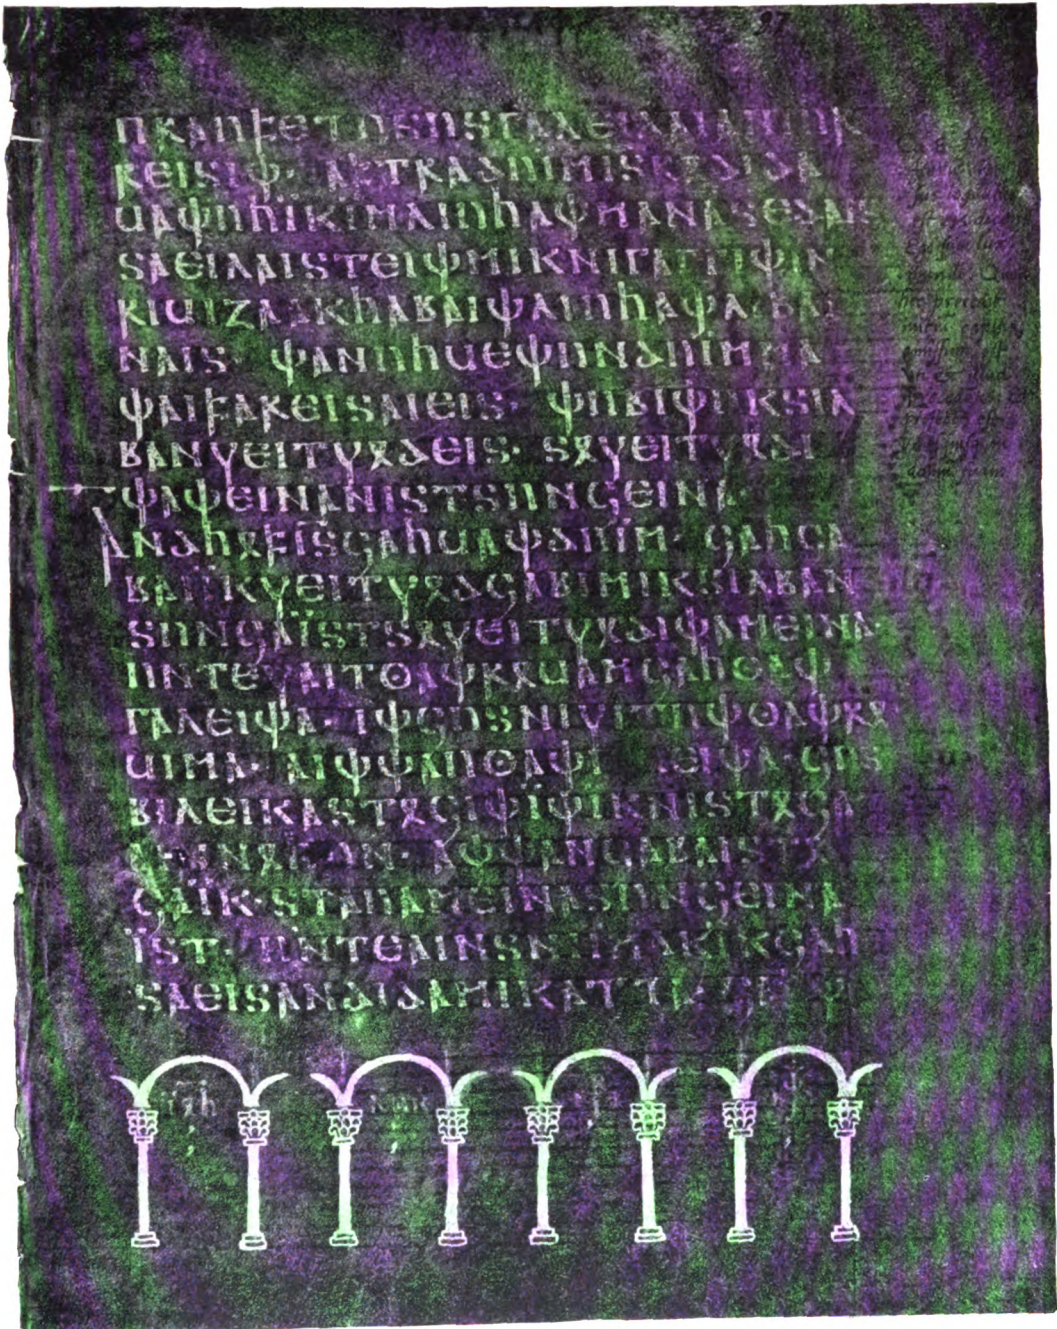 𐍀𐍂𐌰𐌿𐍆𐌴𐍄𐌿𐍃𐌿𐍃𐌲𐌰𐌻𐌴𐌹𐌻𐌰𐌹𐌰𐌽𐌹𐌿𐍂
𐍂𐌴𐌹𐍃𐌹𐌸· 𐌰𐍆𐍄𐍂𐌰𐌳𐌿𐌹𐌼𐌹𐍃𐍂𐍉𐌳𐌹𐌳𐌰
𐌵𐌰𐌸𐌿𐌷𐌹̈𐌺𐌹𐌼𐌻𐌹𐌿𐌷𐌰𐌸𐌼𐌰𐌽𐌰𐍃𐌴𐌳𐌰𐌹𐍃
𐍃𐌰𐌴𐌹𐌻𐌰𐌹𐍃𐍄𐌴𐌹𐌸𐌼𐌹𐌺𐌽𐌹𐌲𐌰𐌲𐌲𐌹𐌸𐌹𐌽
𐍂𐌹𐌵𐌹𐌶𐌰𐌰𐌺𐌷𐌰𐌱𐌰𐌹𐌸𐌻𐌹𐌿𐌷𐌰𐌸𐌻𐌹𐌱𐌰𐌹
𐌽𐌰𐌹𐍃· 𐌸𐌰𐌽𐌿𐌷𐌵𐌴𐌸𐌿𐌽𐌳𐌿𐌹𐌼𐌼𐌰
𐌸𐌰𐌹𐍆𐌰𐍂𐌴𐌹𐍃𐌰𐌹𐌴𐌹𐍃· 𐌸𐌿𐌱𐌹𐌸𐌿𐌺𐍃𐌹𐌻
𐌱𐌰𐌽𐍅𐌴𐌹𐍄𐍅𐍉𐌳𐌴𐌹𐍃· 𐍃𐍉𐍅𐌴𐌹𐍄𐍅𐍉𐌳𐌹
𐌸𐌰𐌸𐌴𐌹𐌽𐌰𐌽𐌹𐍃𐍄𐍃𐌿𐌽𐌾𐌴𐌹𐌽𐌰·
𐌰𐌽𐌳𐌷𐍉𐍆𐌹̈𐍃𐌾𐌰𐌷𐌵𐌰𐌸𐌳𐌿𐌹𐌼· 𐌾𐌰𐌷𐌾𐌰
𐌱𐌰𐌹𐌹̈𐌺𐍅𐌴𐌹𐍄𐍅𐍉𐌳𐌾𐌰𐌱𐌹𐌼𐌹𐌺𐍃𐌹𐌻𐌱𐌰𐌽
𐍃𐌿𐌽𐌾𐌰𐌹̈𐍃𐍄𐍃𐍉𐍅𐌴𐌹𐍄𐍅𐍉𐌳𐌹𐌸𐌰𐌼𐌴𐌹𐌽𐌰·
𐌿𐌽𐍄𐌴𐍅𐌰𐌹𐍄𐍈𐌰𐌸𐍂𐍉𐌵𐌰𐌼𐌾𐌰𐌷𐍈𐌰𐌸
𐌲𐌰𐌻𐌴𐌹𐌸𐌰· 𐌹𐌸𐌾𐌿𐍃𐌽𐌹𐍅𐌹𐍄𐌿𐌸𐍈𐌰𐌸𐍂𐍉
𐌵𐌹𐌼𐌰· 𐌰𐌹𐌸𐌸𐌰𐌿𐍈𐌰𐌸𐌲𐌰𐌻𐌴𐌹𐌸𐌰· 𐌾𐌿𐍃
𐌱𐌹𐌻𐌴𐌹𐌺𐌰𐍃𐍄𐍉𐌾𐌹𐌸𐌹̈𐌸𐌹𐌺𐌽𐌹𐍃𐍄𐍉𐌾𐌰
𐌰𐌹𐌽𐌽𐍉𐌷𐌿𐌽· 𐌰𐌸𐌸𐌰𐌽𐌾𐌰𐌱𐌰𐌹𐍃𐍄𐍉
𐌾𐌰𐌹̈𐌺· 𐍃𐍄𐌰𐌿𐌰𐌼𐌴𐌹𐌽𐌰𐍃𐌿𐌽𐌾𐌴𐌹𐌽𐌰
𐌹̈𐍃𐍄· 𐌿𐌽𐍄𐌴𐌰𐌹𐌽𐍃𐌽𐌹𐌹𐌼𐌰𐌺𐌹̈𐌺𐌾𐌰𐌷
𐍃𐌰𐌴𐌹𐍃𐌰𐌽𐌳𐌹𐌳𐌰𐌼𐌹𐌺𐌰𐍄𐍄𐌰·
𐌹̈𐍉𐌷